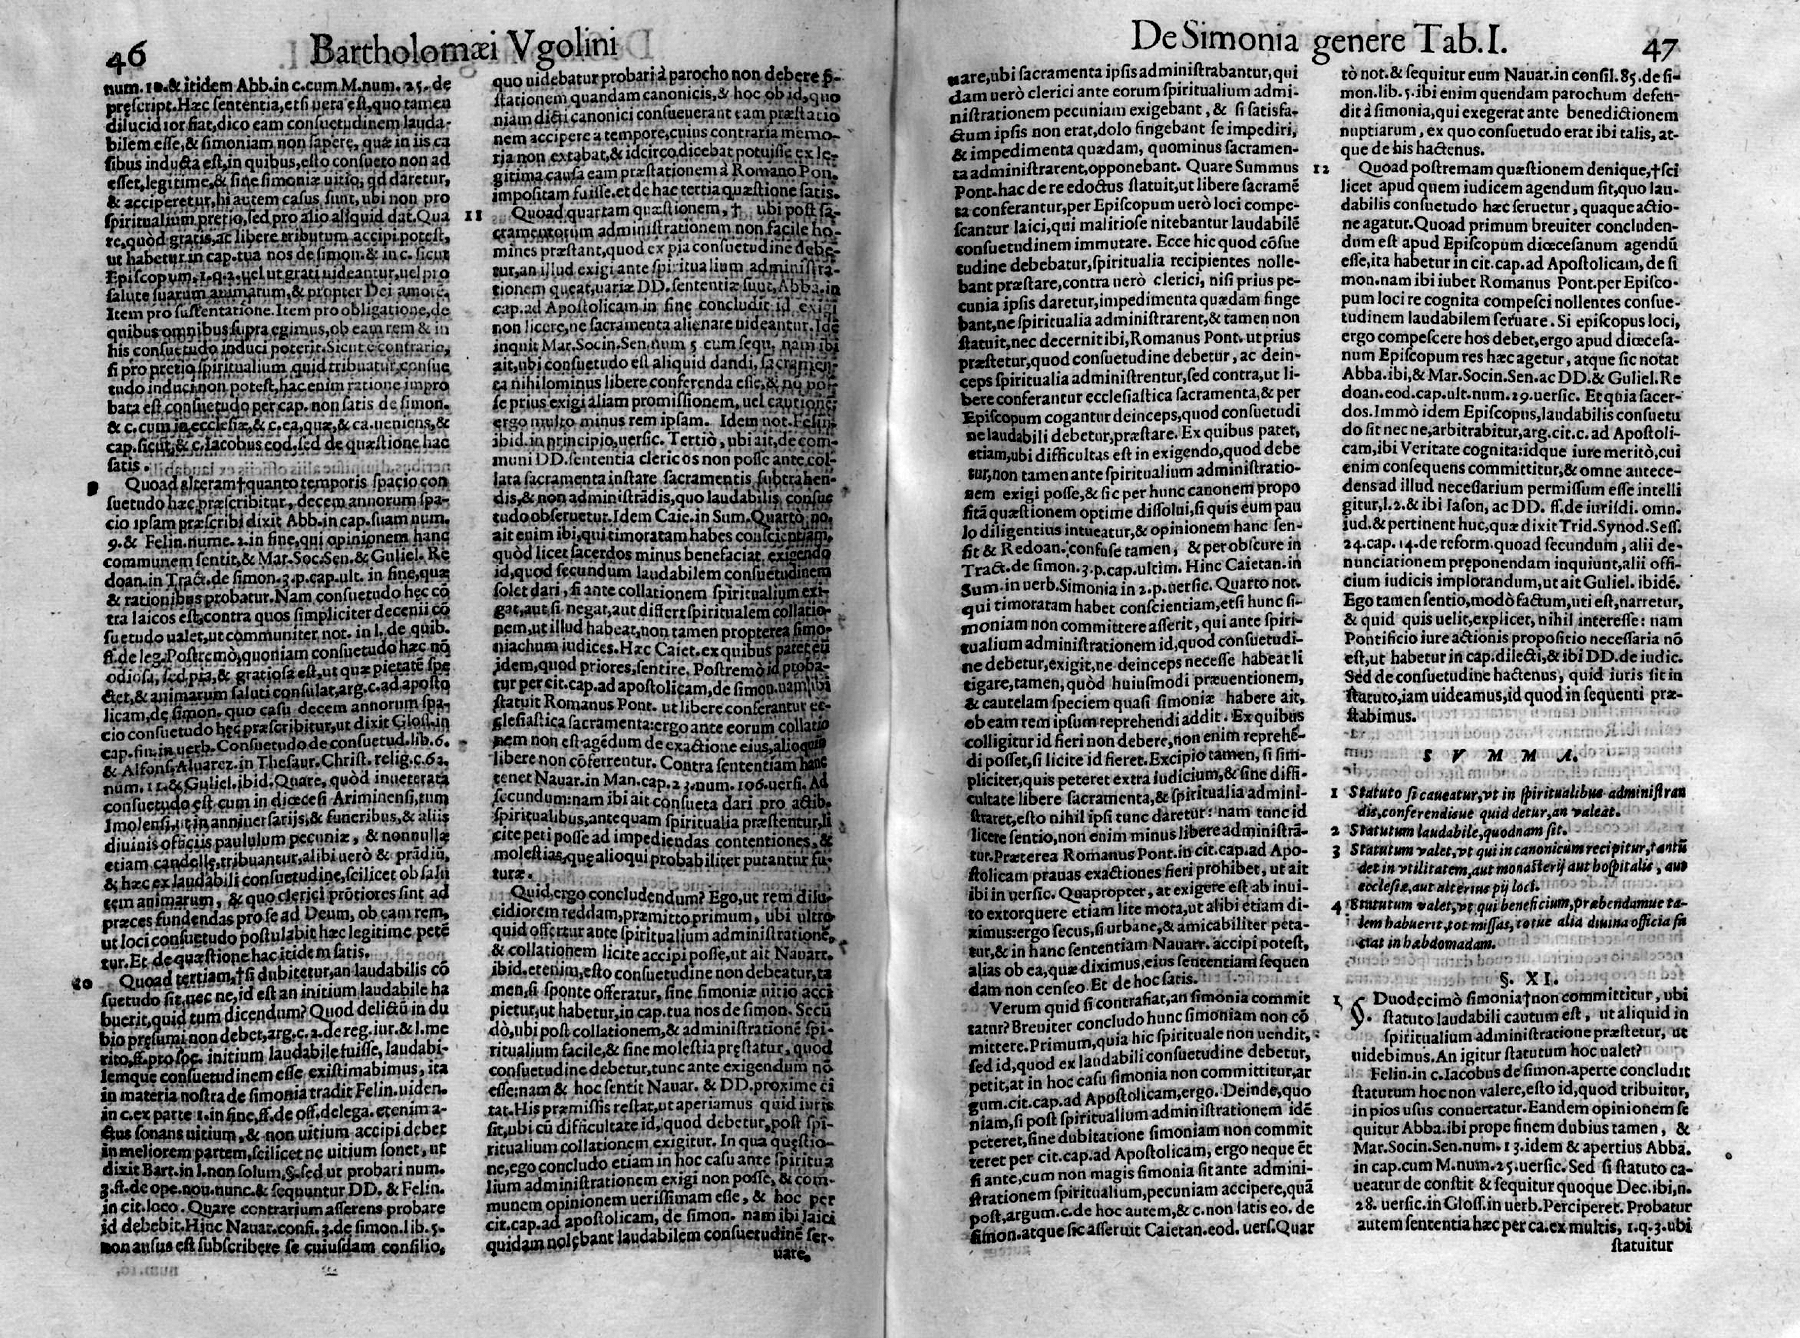 46
Bartholomæi Vgolini
num. 10. & itidem Abb. in c. cum M. num. 25. de
pręscript. Hæc sententia, etsi uera est, quo tamen
dilucidior fiat, dico eam consuetudinem lauda-
bilem esse, & simoniam non sapere, quæ in iis ca
sibus inducta est, in quibus, esto consueto non ad
esset, legitime, & sine simoniæ uitio, qd daretur,
& acciperetur, hi autem casus sunt, ubi non pro
spiritualium pretio, sed pro alio aliquid dat. Qua
re, quòd gratis, ac libere tributum accipi potest,
ut habetur in cap. tua nos de simon. & in c. sicut
Episcopum, 1. q. 2. uel ut grati uideantur, uel pro
salute suarum animarum, & propter Dei amorē.
Item pro sustentatione. Item pro obligatione, de
quibus omnibus supra egimus, ob eam rem & in
his consuetudo induci poterit. Sicut è contrario,
si pro pretio spiritualium quid tribuatur, consue
tudo induci non potest, hac enim ratione impro
bata est consuetudo per cap. non satis de simon.
& c. cum in ecclesiæ, & c. ea, quæ, & ca. ueniens, &
cap. sicut, & c. Iacobus eod. sed de quæstione hac
satis.
Quoad alteram † quanto temporis spacio con
suetudo hæc pręscribitur, decem annorum spa-
cio ipsam præscribi dixit Abb. in cap. suam num.
9. & Felin. nume. 2. in fine, qui opinionem hanc
communem sentit, & Mar. Soc. Sen. & Guliel. Re
doan. in Tract. de simon. 3. p. cap. ult. in fine, quæ
& rationibus probatur. Nam consuetudo hęc cō
tra laicos est, contra quos simpliciter decenii cō
suetudo ualet, ut communiter not. in l. de quib.
ff. de leg. Postremò, quoniam consuetudo hæc nō
odiosa, sed pia, & gratiosa est, ut quæ pietatē spe
ctet, & animarum saluti consulat, arg. c. ad aposto
licam, de simon. quo casu decem annorum spa-
cio consuetudo hęc præscribitur, ut dixit Gloss. in
cap. fin. in uerb. Consuetudo de consuetud. lib. 6.
& Alfons. Aluarez. in Thesaur. Christ. relig. c. 62.
num. 11. & Guliel. ibid. Quare, quòd inueterata
consuetudo est, cum in diœcesi Ariminensi, tum
Imolensi, ut in anniuersarijs, & funeribus, & aliis
diuinis officiis paululum pecuniæ, & nonnullæ
etiam candellę, tribuantur, alibi uerò & prādiū,
& hæc ex laudabili consuetudine, scilicet ob salū
tem animarum, & quo clerici prōtiores sint ad
præces fundendas pro se ad Deum, ob eam rem,
ut loci consuetudo postulabit hæc legitime petē
tur. Et de quæstione hac itidem satis.
10 Quoad tertiam, † si dubitetur, an laudabilis cō
suetudo sit, nec ne, id est an initium laudabile ha
buerit, quid tum dicendum? Quod delictū in du
bio pręsumi non debet, arg. c. 2. de reg. iur. & l. me
rito, ff. pro soc. initium laudabile fuisse, laudabi-
lemque consuetudinem esse existimabimus, ita
in materia nostra de simonia tradit Felin. uiden.
in c. ex parte 1. in fine, ff. de off. delega. etenim a-
ctus sonans uitium, & non uitium accipi debet
in meliorem partem, scilicet ne uitium sonet, ut
dixit Bart. in l. non solum, §. sed ut probari num.
3. ff. de ope. nou. nunc. & sequuntur DD. & Felin.
in cit. loco. Quare contrarium asserens probare
id debebit. Hinc Nauar. consi. 3. de simon. lib. 5.
non ausus est subscribere se cuiusdam consilio,
quo uidebatur probari à parocho non debere p̄-
stationem quandam canonicis, & hoc ob id, quo
niam dicti canonici consueuerant eam præstatio
nem accipere a tempore, cuius contraria memo-
ria non extabat, & idcirco dicebat potuisse ex le-
gitima causa eam præstationem à Romano Pon.
impositam fuisse. et de hac tertia quæstione satis.
11 Quoad quartam quæstionem, † ubi post sa-
cramentorum administrationem non facile ho-
mines præstant, quod ex pia consuetudine debe-
tur, an illud exigi ante spiritualium administra-
tionem queat, uariæ DD. sententiæ sunt, Abba. in
cap. ad Apostolicam in fine concludit id exigi
non licere, ne sacramenta alienare uideantur. Idē
inquit Mar. Socin. Sen. num 5 cum sequ. nam ibi
ait, ubi consuetudo est aliquid dandi, sacramen-
ta nihilominus libere conferenda esse, & nō pos-
se prius exigi aliam promissionem, uel cautionē
ergo multo minus rem ipsam. Idem not. Felin.
ibid. in principio, uersic. Tertiò, ubi ait, de com-
muni DD. sententia clericos non posse ante col-
lata sacramenta instare sacramentis subtrahen-
dis, & non administrādis, quo laudabilis consue
tudo obseruetur. Idem Caie. in Sum. Quarto, no.
ait enim ibi, qui timoratam habes conscientiam,
quòd licet sacerdos minus benefaciat exigendo
id, quod secundum laudabilem consuetudinem
solet dari, si ante collationem spiritualium exi-
gat, aut si negat, aut differt spiritualem collatio-
nem, ut illud habeat, non tamen propterea simo-
niachum iudices. Hæc Caiet. ex quibus patet eū
idem, quod priores, sentire. Postremò id proba-
tur per cit. cap. ad apostolicam, de simon. nam ibi
statuit Romanus Pont. ut libere conferantur ec-
clesiastica sacramenta: ergo ante eorum collatio
nem non est agēdum de exactione eius, alioquin
libere non cōferrentur. Contra sententiam hanc
tenet Nauar. in Man. cap. 23. num. 106. uersi. Ad
secundum: nam ibi ait consueta dari pro actib.
spiritualibus, antequam spiritualia præstentur, li
cite peti posse ad impediendas contentiones, &
molestias, quę alioqui probabiliter putantur fu-
turæ.
Quid ergo concludendum? Ego, ut rem dilu-
cidiorem reddam, præmitto primum, ubi ultro
quid offertur ante spiritualium administrationē,
& collationem licite accipi posse, ut ait Nauarr.
ibid. etenim, esto consuetudine non debeatur, ta
men, si sponte offeratur, sine simoniæ uitio acci
pietur, ut habetur, in cap. tua nos de simon. Secū
dò, ubi post collationem, & administrationē spi-
ritualium facile, & sine molestia pręstatur, quod
consuetudine debetur, tunc ante exigendum nō
esse: nam & hoc sentit Nauar. & DD. proxime ci
tat. His præmissis restat, ut aperiamus quid iuris
sit, ubi cū difficultate id, quod debetur, post spi-
ritualium collationem exigitur. In qua quęstio-
ne, ego concludo etiam in hoc casu ante spiritua
lium administrationem exigi non posse, & com-
munem opinionem uerissimam esse, & hoc per
cit. cap. ad apostolicam, de simon. nam ibi laici
quidam nolębant laudabilem consuetudinē ser-
uare,
De Simonia genere Tab. I.
47
uare, ubi sacramenta ipsis administrabantur, qui
dam uerò clerici ante eorum spiritualium admi-
nistrationem pecuniam exigebant, & si satisfa-
ctum ipsis non erat, dolo fingebant se impediri,
& impedimenta quædam, quominus sacramen-
ta administrarent, opponebant. Quare Summus
Pont. hac de re edoctus statuit, ut libere sacramē
ta conferantur, per Episcopum uerò loci compe-
scantur laici, qui malitiose nitebantur laudabilē
consuetudinem immutare. Ecce hic quod cōsue
tudine debebatur, spiritualia recipientes nolle-
bant præstare, contra uerò clerici, nisi prius pe-
cunia ipsis daretur, impedimenta quædam finge
bant, ne spiritualia administrarent, & tamen non
statuit, nec decernit ibi, Romanus Pont. ut prius
præstetur, quod consuetudine debetur, ac dein-
ceps spiritualia administrentur, sed contra, ut li-
bere conferantur ecclesiastica sacramenta, & per
Episcopum cogantur deinceps, quod consuetudi
ne laudabili debetur, præstare. Ex quibus patet,
etiam, ubi difficultas est in exigendo, quod debe
tur, non tamen ante spiritualium administratio-
nem exigi posse, & sic per hunc canonem propo
sitā quæstionem optime dissolui, si quis eum pau
lo diligentius intueatur, & opinionem hanc sen-
sit & Redoan. confuse tamen, & perobscure in
Tract. de simon. 3. p. cap. ultim. Hinc Caietan. in
Sum. in uerb. Simonia in 2. p. uersic. Quarto not.
qui timoratam habet conscientiam, etsi hunc si-
moniam non committere asserit, qui ante spiri-
tualium administrationem id, quod consuetudi-
ne debetur, exigit, ne deinceps necesse habeat li
tigare, tamen, quòd huiusmodi præuentionem,
& cautelam speciem quasi simoniæ habere ait,
ob eam rem ipsum reprehendi addit. Ex quibus
colligitur id fieri non debere, non enim reprehē-
di posset, si licite id fieret. Excipio tamen, si sim-
pliciter, quis peteret extra iudicium, & sine diffi-
cultate libere sacramenta, & spiritualia admini-
straret, esto nihil ipsi tunc daretur: nam tunc id
licere sentio, non enim minus libere administrā-
tur. Præterea Romanus Pont. in cit. cap. ad Apo-
stolicam prauas exactiones fieri prohibet, ut ait
ibi in uersic. Quapropter, at exigere est ab inui-
to extorquere etiam lite mota, ut alibi etiam di-
ximus: ergo secus, si urbane, & amicabiliter peta-
tur, & in hanc sententiam Nauarr. accipi potest,
alias ob ea, quæ diximus, eius sententiam sequen
dam non censeo. Et de hoc satis.
Verum quid si contrafiat, an simonia commit
tatur? Breuiter concludo hunc simoniam non cō
mittere. Primum, quia hic spirituale non uendit,
sed id, quod ex laudabili consuetudine debetur,
petit, at in hoc casu simonia non committitur, ar
gum. cit. cap. ad Apostolicam, ergo. Deinde, quo
niam, si post spiritualium administrationem idē
peteret, sine dubitatione simoniam non commit
teret per cit. cap. ad Apostolicam, ergo neque ēt
si ante, cum non magis simonia sit ante admini-
strationem spiritualium, pecuniam accipere, quā
post, argum. c. de hoc autem, & c. non latis eo. de
simon. atque sic asseruit Caietan. eod. uers. Quar
tò not. & sequitur eum Nauar. in consil. 85. de si-
mon. lib. 5. ibi enim quendam parochum defen-
dit à simonia, qui exegerat ante benedictionem
nuptiarum, ex quo consuetudo erat ibi talis, at-
que de his hactenus.
12 Quoad postremam quæstionem denique, † sci
licet apud quem iudicem agendum sit, quo lau-
dabilis consuetudo hæc seruetur, quaque actio-
ne agatur. Quoad primum breuiter concluden-
dum est apud Episcopum diœcesanum agendū
esse, ita habetur in cit. cap. ad Apostolicam, de si
mon. nam ibi iubet Romanus Pont. per Episco-
pum loci re cognita compesci nollentes consue-
tudinem laudabilem seruare. Si episcopus loci,
ergo compescere hos debet, ergo apud diœcesa-
num Episcopum res hæc agetur, atque sic notat
Abba. ibi, & Mar. Socin. Sen. ac DD. & Guliel. Re
doan. eod. cap. ult. num. 29. uersic. Et quia sacer-
dos. Immò idem Episcopus, laudabilis consuetu
do sit nec ne, arbitrabitur, arg. cit. c. ad Apostoli-
cam, ibi Veritate cognita: idque iure meritò, cui
enim consequens committitur, & omne antece-
dens ad illud necessarium permissum esse intelli
gitur, l. 2. & ibi Iason, ac DD. ff. de iurisdi. omn.
iud. & pertinent huc, quæ dixit Trid. Synod. Sess.
24. cap. 14. de reform. quoad secundum, alii de-
nunciationem pręponendam inquiunt, alii offi-
cium iudicis implorandum, ut ait Guliel. ibidē.
Ego tamen sentio, modò factum, uti est, narretur,
& quid quis uelit, explicet, nihil interesse: nam
Pontificio iure actionis propositio necessaria nō
est, ut habetur in cap. dilecti, & ibi DD. de iudic.
Sed de consuetudine hactenus, quid iuris sit in
statuto, iam uideamus, id quod in sequenti præ-
stabimus.
S V M M A.
1 Statuto si caueatur, vt in spiritualibus administran
dis, conferendisue quid detur, an valeat.
2 Statutum laudabile, quodnam sit.
3 Statutum valet, vt qui in canonicum recipitur, tantū
det in vtilitatem, aut monasterij aut hospitalis, aut
ecclesiæ, aut alterius pij loci.
4 Statutum valet, vt qui beneficium, præbendamue ta-
lem habuerit, tot missas, totue alia diuina officia fa
ciat in habdomadam.
§. XI.
1 §. Duodecimò simonia † non committitur, ubi
statuto laudabili cautum est, ut aliquid in
spiritualium administratione præstetur, ut
uidebimus. An igitur statutum hoc ualet?
Felin. in c. Iacobus de simon. aperte concludit
statutum hoc non valere, esto id, quod tribuitur,
in pios usus conuertatur. Eandem opinionem se
quitur Abba. ibi prope finem dubius tamen, &
Mar. Socin. Sen. num. 13. idem & apertius Abba.
in cap. cum M. num. 25. uersic. Sed si statuto ca-
ueatur de constit & sequitur quoque Dec. ibi, n.
28. uersic. in Gloss. in uerb. Perciperet. Probatur
autem sententia hæc per ca. ex multis, 1. q. 3. ubi
statuitur